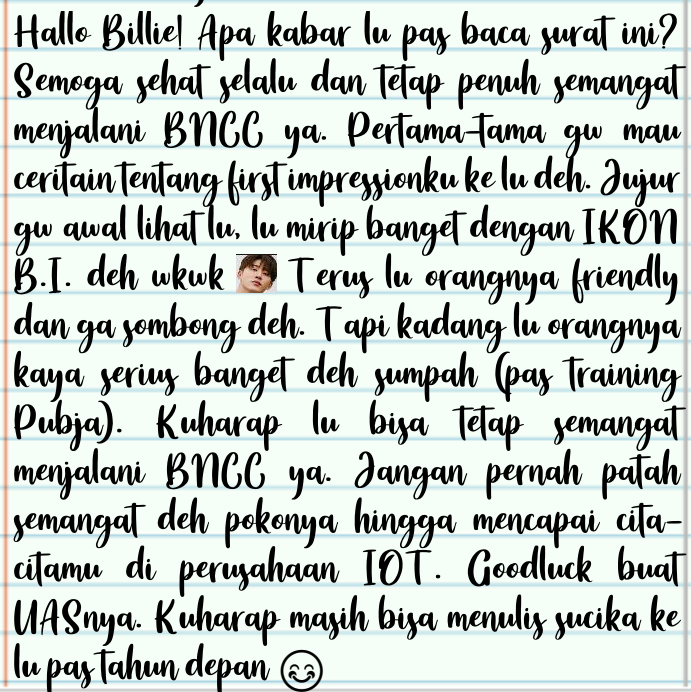 Hallo Billie! Apa kabar lu pas baca surat ini?
Semoga sehat selalu dan tetap penuh semangat
menjalani BNCC ya. Pertama-tama gw mau
ceritain tentang first impressionku ke lu deh. Jujur
gw awal lihat lu, lu mirip banget dengan IKON
B.I. deh wkwk Terus lu orangnya friendly
dan ga sombong deh. Tapi kadang lu orangnya
kaya serius banget deh sumpah (pas training
Pubja). Kuharap lu bisa tetap semangat
menjalani BNCC ya. Jangan pernah patah
semangat deh pokonya hingga mencapai cita-
citamu di perusahaan IOT. Goodluck buat
UASnya. Kuharap masih bisa menulis sucika ke
lu pas tahun depan 😊